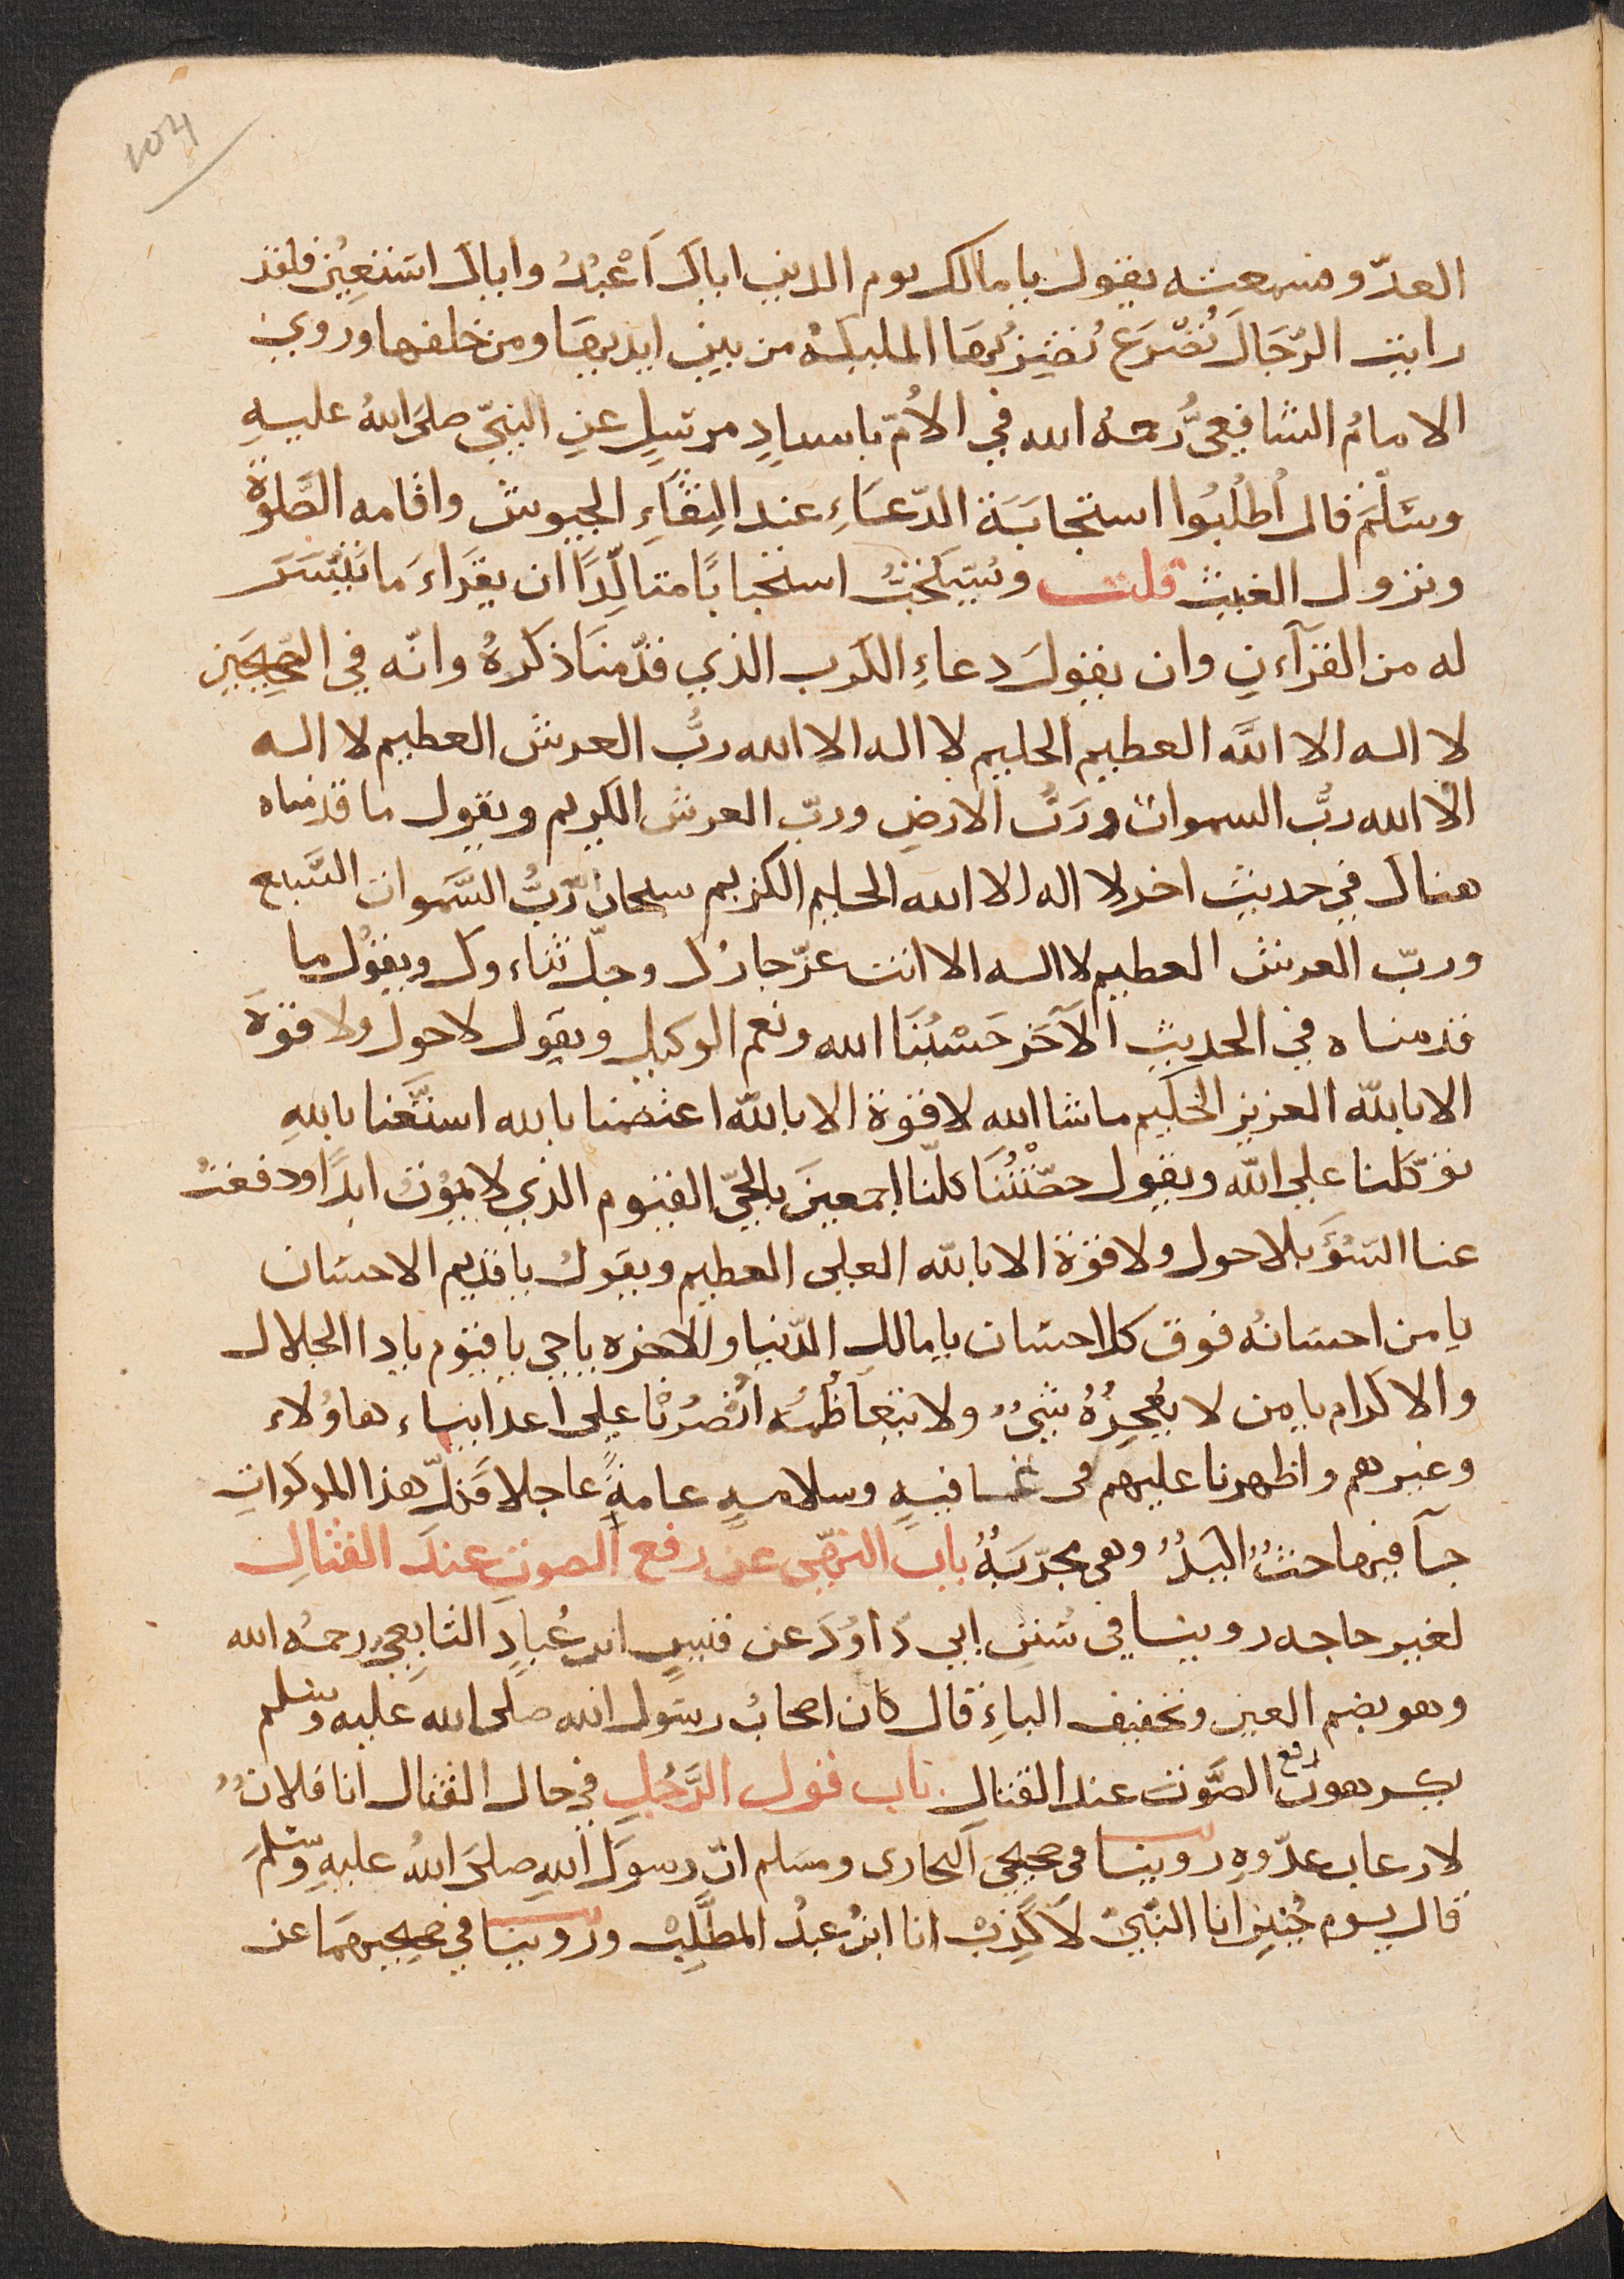 104
العدّو فسمعته يقول يا مالك يوم الدين اياك اَعْبُدُ واياك استعِين فلقد
رايت الرّجَالَ تُصْرَع تُضرِبُهَا المليكةُ من بين ايديهَا ومن خلفها وروي
الامامُ الشافعيُّ رَحمهُ الله في الاُمّ باسنادٍ مرسَلٍ عنِ النبيّ صلى اللهُ عليهِ
وسَلّمَ قال اُطلُبُوا استجابَةَ الدّعَاءِ عند التِقَاءِ الجيوش واقامه الصَّلوةِ
ونزول الغيث قلت ويُستَحَبُّ استحبابًا متاكِّدًا ان يقرَاءَ ما تَيَسَّرَ
له من القرآءنِ وان يقولَ دعاءِ الكرب الذي قدّمنَا ذكرهُ وانّه في الصّحِيحَينِ
لا اله الا اللَّه العظيم الحليم لا اله الا الله ربُّ العرش العظيم لا اله
الّا الله ربُّ السموات ورَبُّ الارضِ وربّ العرش الكريم ويقول ما قدمناه
هناك في حديث اخر لا اله الا الله الحليم الكريم سبحان ربُّ السَّموات السَّبع
وربّ العرش العظيم لا اله الا انت عزّ جارُك وجلّ ثناءوك ويقول ما
قدمناه في الحديث الآخَر حَسْبُنَا الله ونعم الوكيل ويقول لا حول ولا قوّةَ
الا باللّه العزيز الحكيم ما شا الله لا قوّة الا باللّه اعتصمنا بالله استَعَنا باللهِ
توَكّلنا على اللّه ويقول حصّنْتُنَا كلّنا اجمعينَ بالحيّ القيوم الذي لا يموُتُ ابدًا ودفعتُ
عنا السّؤَ بلا حول ولا قوّة الا باللّه العلى العظيم ويقولُ يا قديم الاحسان
يا من احسانهُ فوق كل احسان يا مالك الدّنيا والاخره يا حي يا قيوم يا دا الجلال
والاكرام يا من لا يُعجِزُهُ شيٌ ولا يتعَاظُمه اُنصُرْنا على اعداينا، هاوُلاء
وغيرهم واظهرنا عليهم فى عافيهٍ وسلامهٍ عامةٍ عاجلا فكلّ هذا المذكواتِ
جآ فيها حثٌ اكيدٌ وهى مجرّبَةٌ باب النهّى عن رفع الصوتِ عندَ القتَالِ
لغير حاجه روينا في سُنَنِ ابي دَاوُدَ عن قيسٍ ابن عُبادِ التابعيّ رحمهُ الله
وهو بضم العين وتخفيف الباءِ قال كان اصحابُ رسَول الله صلى الله عليه وسلم
يكرهونَ رفع الصَّوتَ عند القتال باب قول الرَّجُلِ في حال القتال انا فلانٌ
لارعاب عدّوهِ روينا فى صحيحَي البخارى ومسَلم انّ رسولَ اللهِ صلىَ اللهُ عليهِ وسلّمَ
قال يوم حُنينٍ انا النّبيّ لَا كَذِبْ انا ابنُ عبدُ المطَّلِبْ وروينا في صحيحيهمَا عن